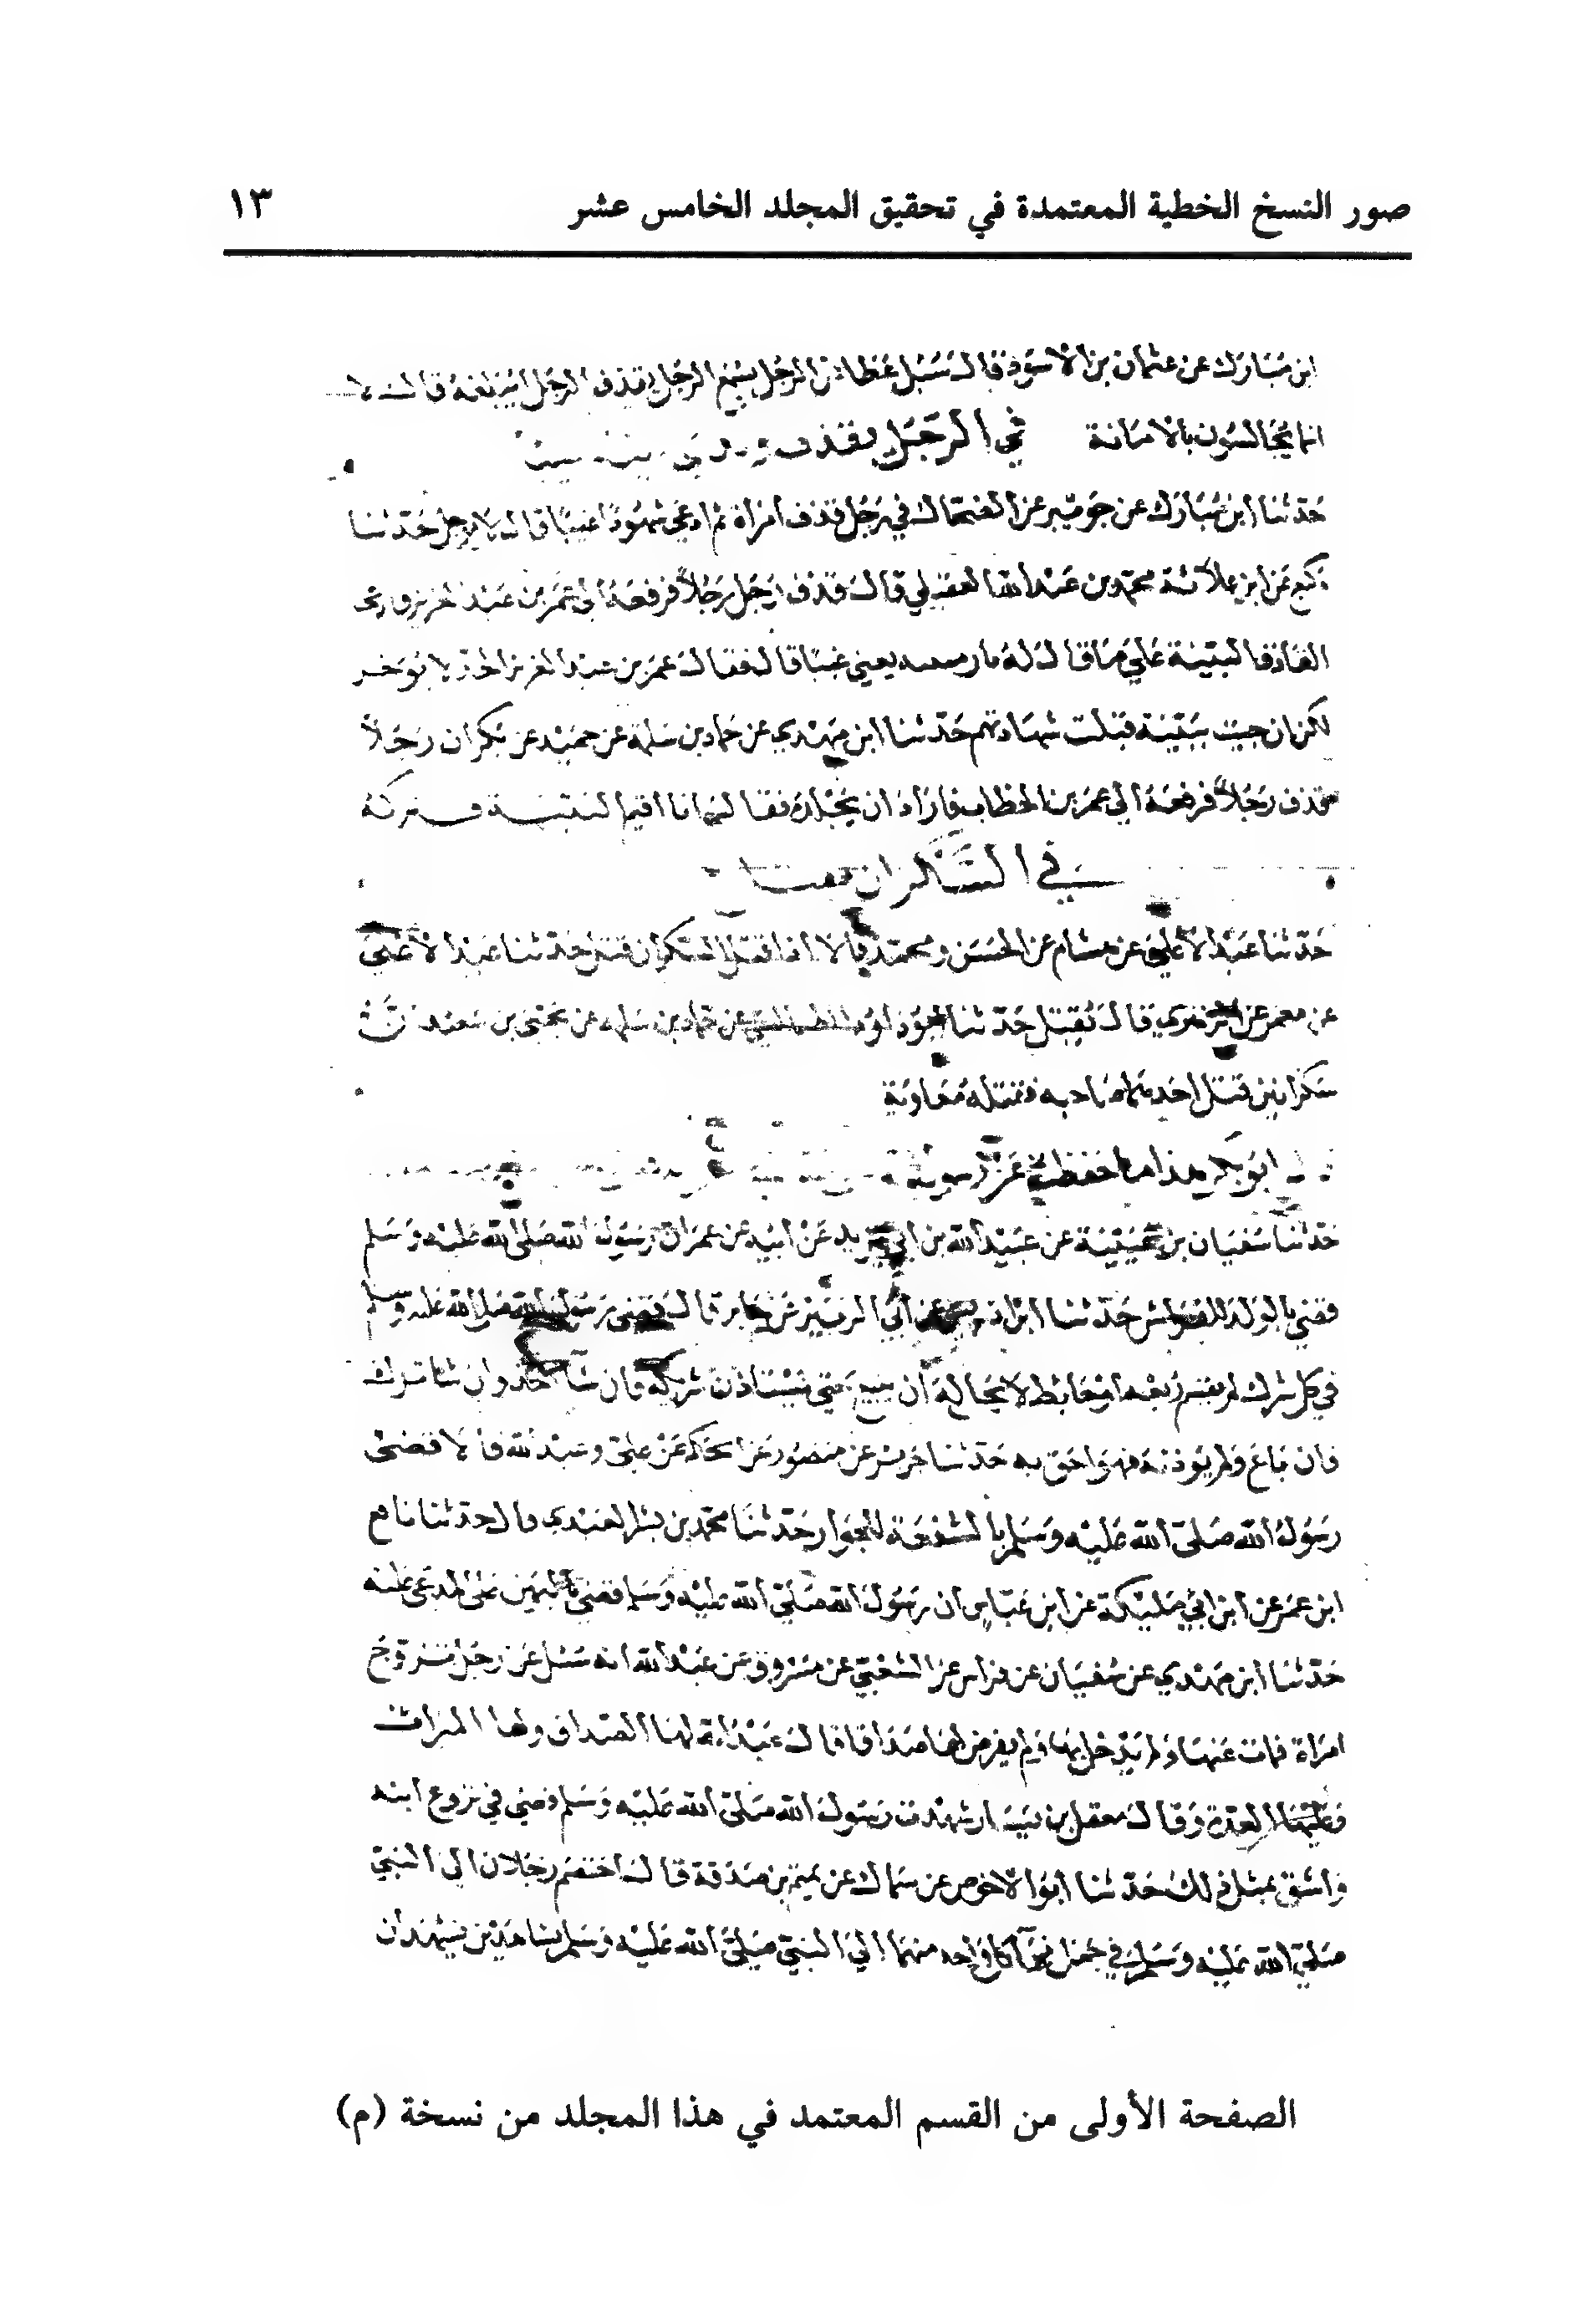 صور النسخ الخطية المعتمدة في تحقيق المجلد الخامس عشر ١٣
ابن مبارك عن عثمان بن الاسود قال سئل عطا عن الرجل يسمع الرجل يقذف الرجل ايبلغه قال لا
انما يجالسون بالامانة في الرجل يقذف
حدثنا ابن مبارك عن جويبر عن الضحاك في رجل قذف امراة ثم ادعى شهودا غيبا قال لا يوجل حدثنا
وكيع عن ابن علاثة محمد بن عبد الله العقيلي قال قذف رجل رجلا فرفعه الى عمر بن عبد العزيز وادعى
القاذف البينة على ما قال له بارمينية يعني غيبا قال فقال عمر بن عبد العزيز الحد لا يوخر
لكن ان جيت ببينة قبلت شهادتهم حدثنا ابن مهدي عن حماد بن سلمة عن حميد عن بكر ان رجلا
قذف رجلا فرفعه الى عمر بن الخطاب فاراد ان يجلده فقال انا اقيم البينة فتركه
في السكران يقتل
حدثنا عبد الاعلى عن هشام عن الحسن ومحمد قالا اذا قتل السكران قتل حدثنا عبد الاعلى
عن معمر عن الزهري قال يقتل حدثنا ابو داود الطيالسي عن حماد بن سلمة عن يحيى بن سعيد ان
سكرانين قتل احدهما صاحبه فقتله معاوية
ابو بكر هذا ما حفظت عن
حدثنا سفيان بن عيينة عن عبيد الله بن ابي يزيد عن ابيه عن عمر ان رسول الله صلى الله عليه وسلم
قضى بالولد للفراش حدثنا ابن ادريس عن ابي الزبير عن جابر قال قضى رسول الله صلى الله عليه وسلم
في كل شرك لم يقسم ربعه او حائط لا يحل له ان يبيع حتى يستاذن شريكه فان شا اخذ وان شا ترك
فان باع ولم يوذنه فهو احق به حدثنا جرير عن منصور عن الحكم عن علي وعبد الله قالا قضى
رسول الله صلى الله عليه وسلم بالشفعة للجوار حدثنا محمد بن بشر العبدي قال حدثنا نافع
ابن عمر عن ابن ابي مليكة عن ابن عباس ان رسول الله صلى الله عليه وسلم قضى باليمين على المدعى عليه
حدثنا ابن مهدي عن سفيان عن فراس عن الشعبي عن مسروق عن عبد الله انه سئل عن رجل تزوج
امراة فمات عنها ولم يدخل بها ولم يفرض لها صداقا قال عبد الله لها الصداق ولها الميراث
وعليها العدة وقال معقل بن يسار شهدت رسول الله صلى الله عليه وسلم قضى في بروع ابنه
واشق بمثل ذلك حدثنا ابو الاحوص عن سماك عن تميم بن صدقة قال اختصم رجلان الى النبي
صلى الله عليه وسلم في جمل فجا كل واحد منهما الى النبي صلى الله عليه وسلم بشاهدين يشهدان
الصفحة الأولى من القسم المعتمد في هذا المجلد من نسخة (م)